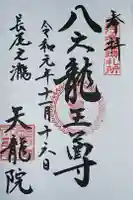 奉拝
八大龍王尊
令和元年十一月十六日
長尾之瀧
天龍院